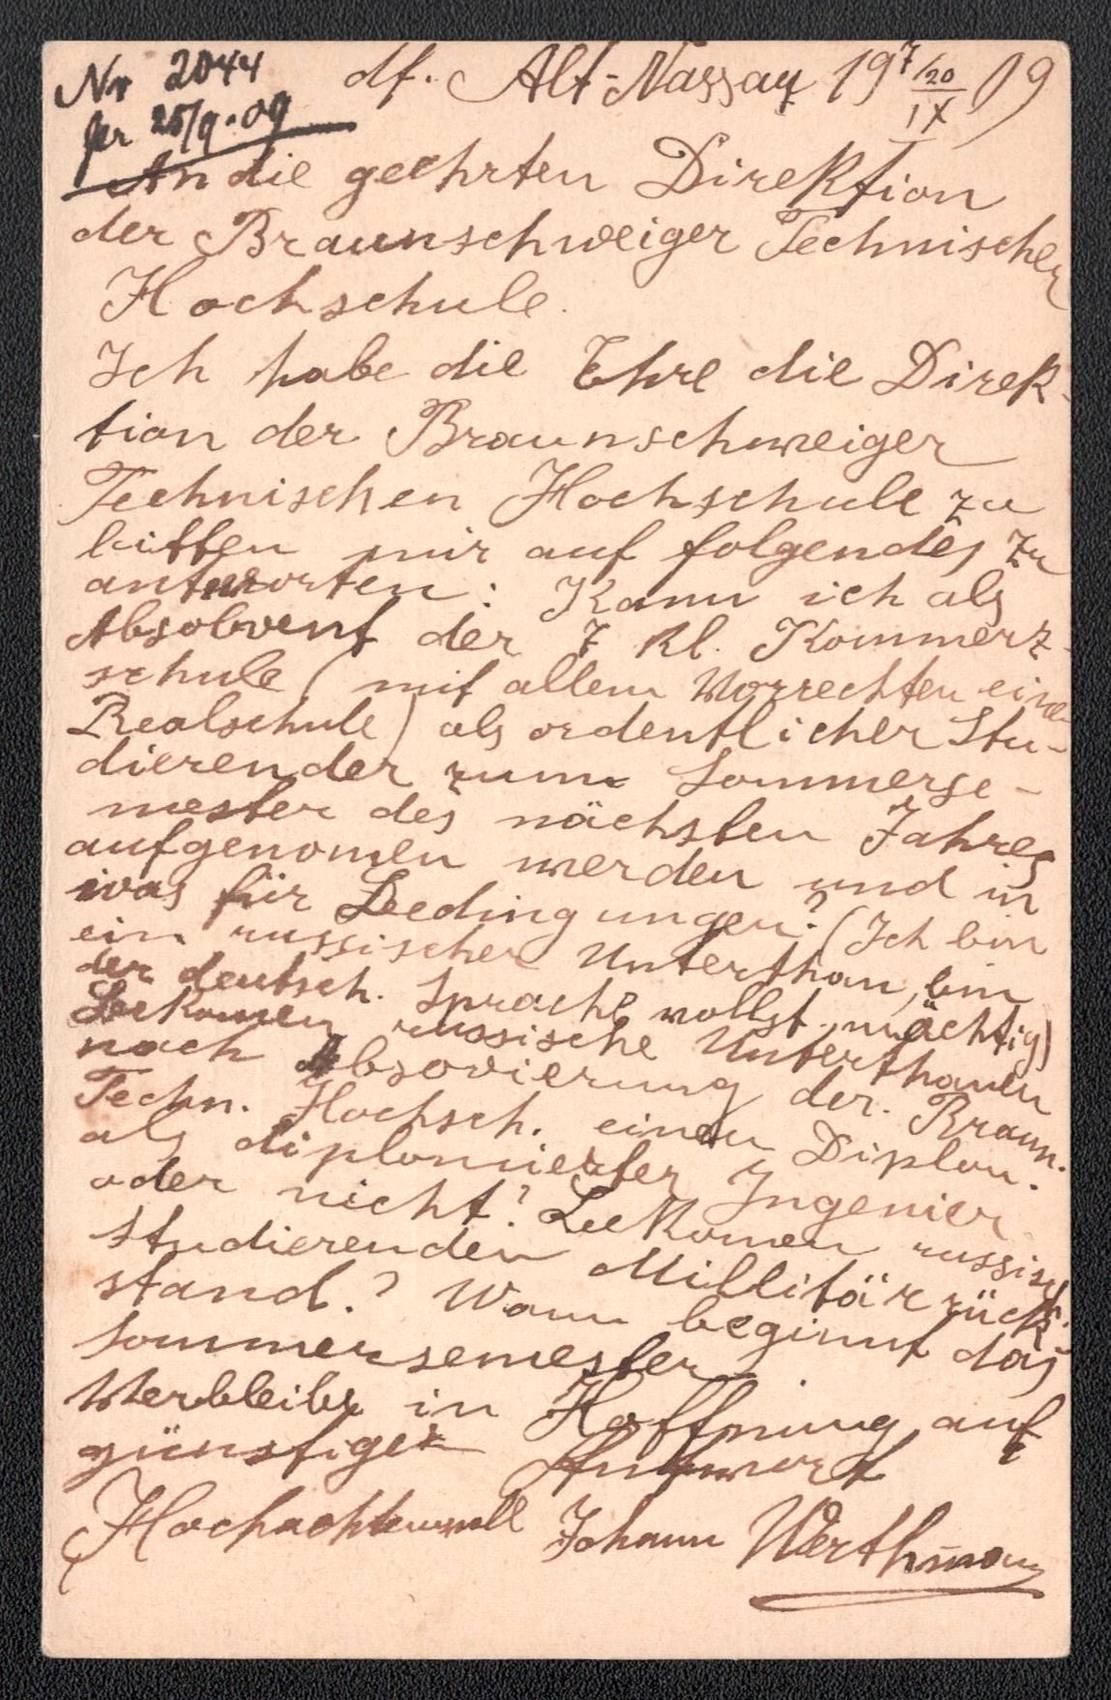 Nr 2044
per 25/9.09
df. Alt-Nassau 19 7/20 IX 09
An die geehrten Direktion
der Braunschweiger Technischen
Hochschule.
Ich habe die Ehre die Direk-
tion der Braunschweiger
Technischen Hochschule zu
bitten mir auf folgendes zu
antworten: Kann ich als
Absolvent der 7 kl. Kommerz-
schule (mit allen Vorrechten einer
Realschule) als ordentlicher Stu-
dierender zum Sommerse-
mester des nächsten Jahres
aufgenomen werden und in
was für Bedingungen? (Ich bin
ein russischer Unterthan, bin
der deutsch. Sprache vollst. mächtig)
Bekomen russische Unterthanen
nach Absovierung der. Braun.
Techn. Hochsch. einen Diplom.
als diplomierter Ingenier
oder nicht? Bekomen russisch.
studierenden Millitärrück-
stand.? Wann beginnt das
Sommersemester
Verbleibe in Hoffnung auf
günstiger Antwort
Hochachtunsvoll Johann Werthmann